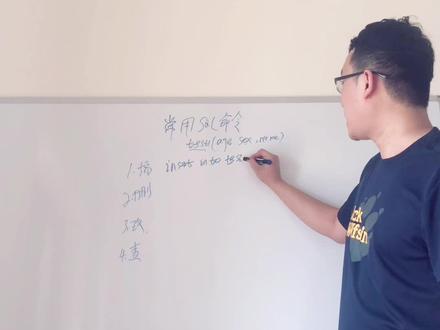 常用SQL命令
test(age sex,name)
1.增 insert into tes
2.删
3.改
4.查